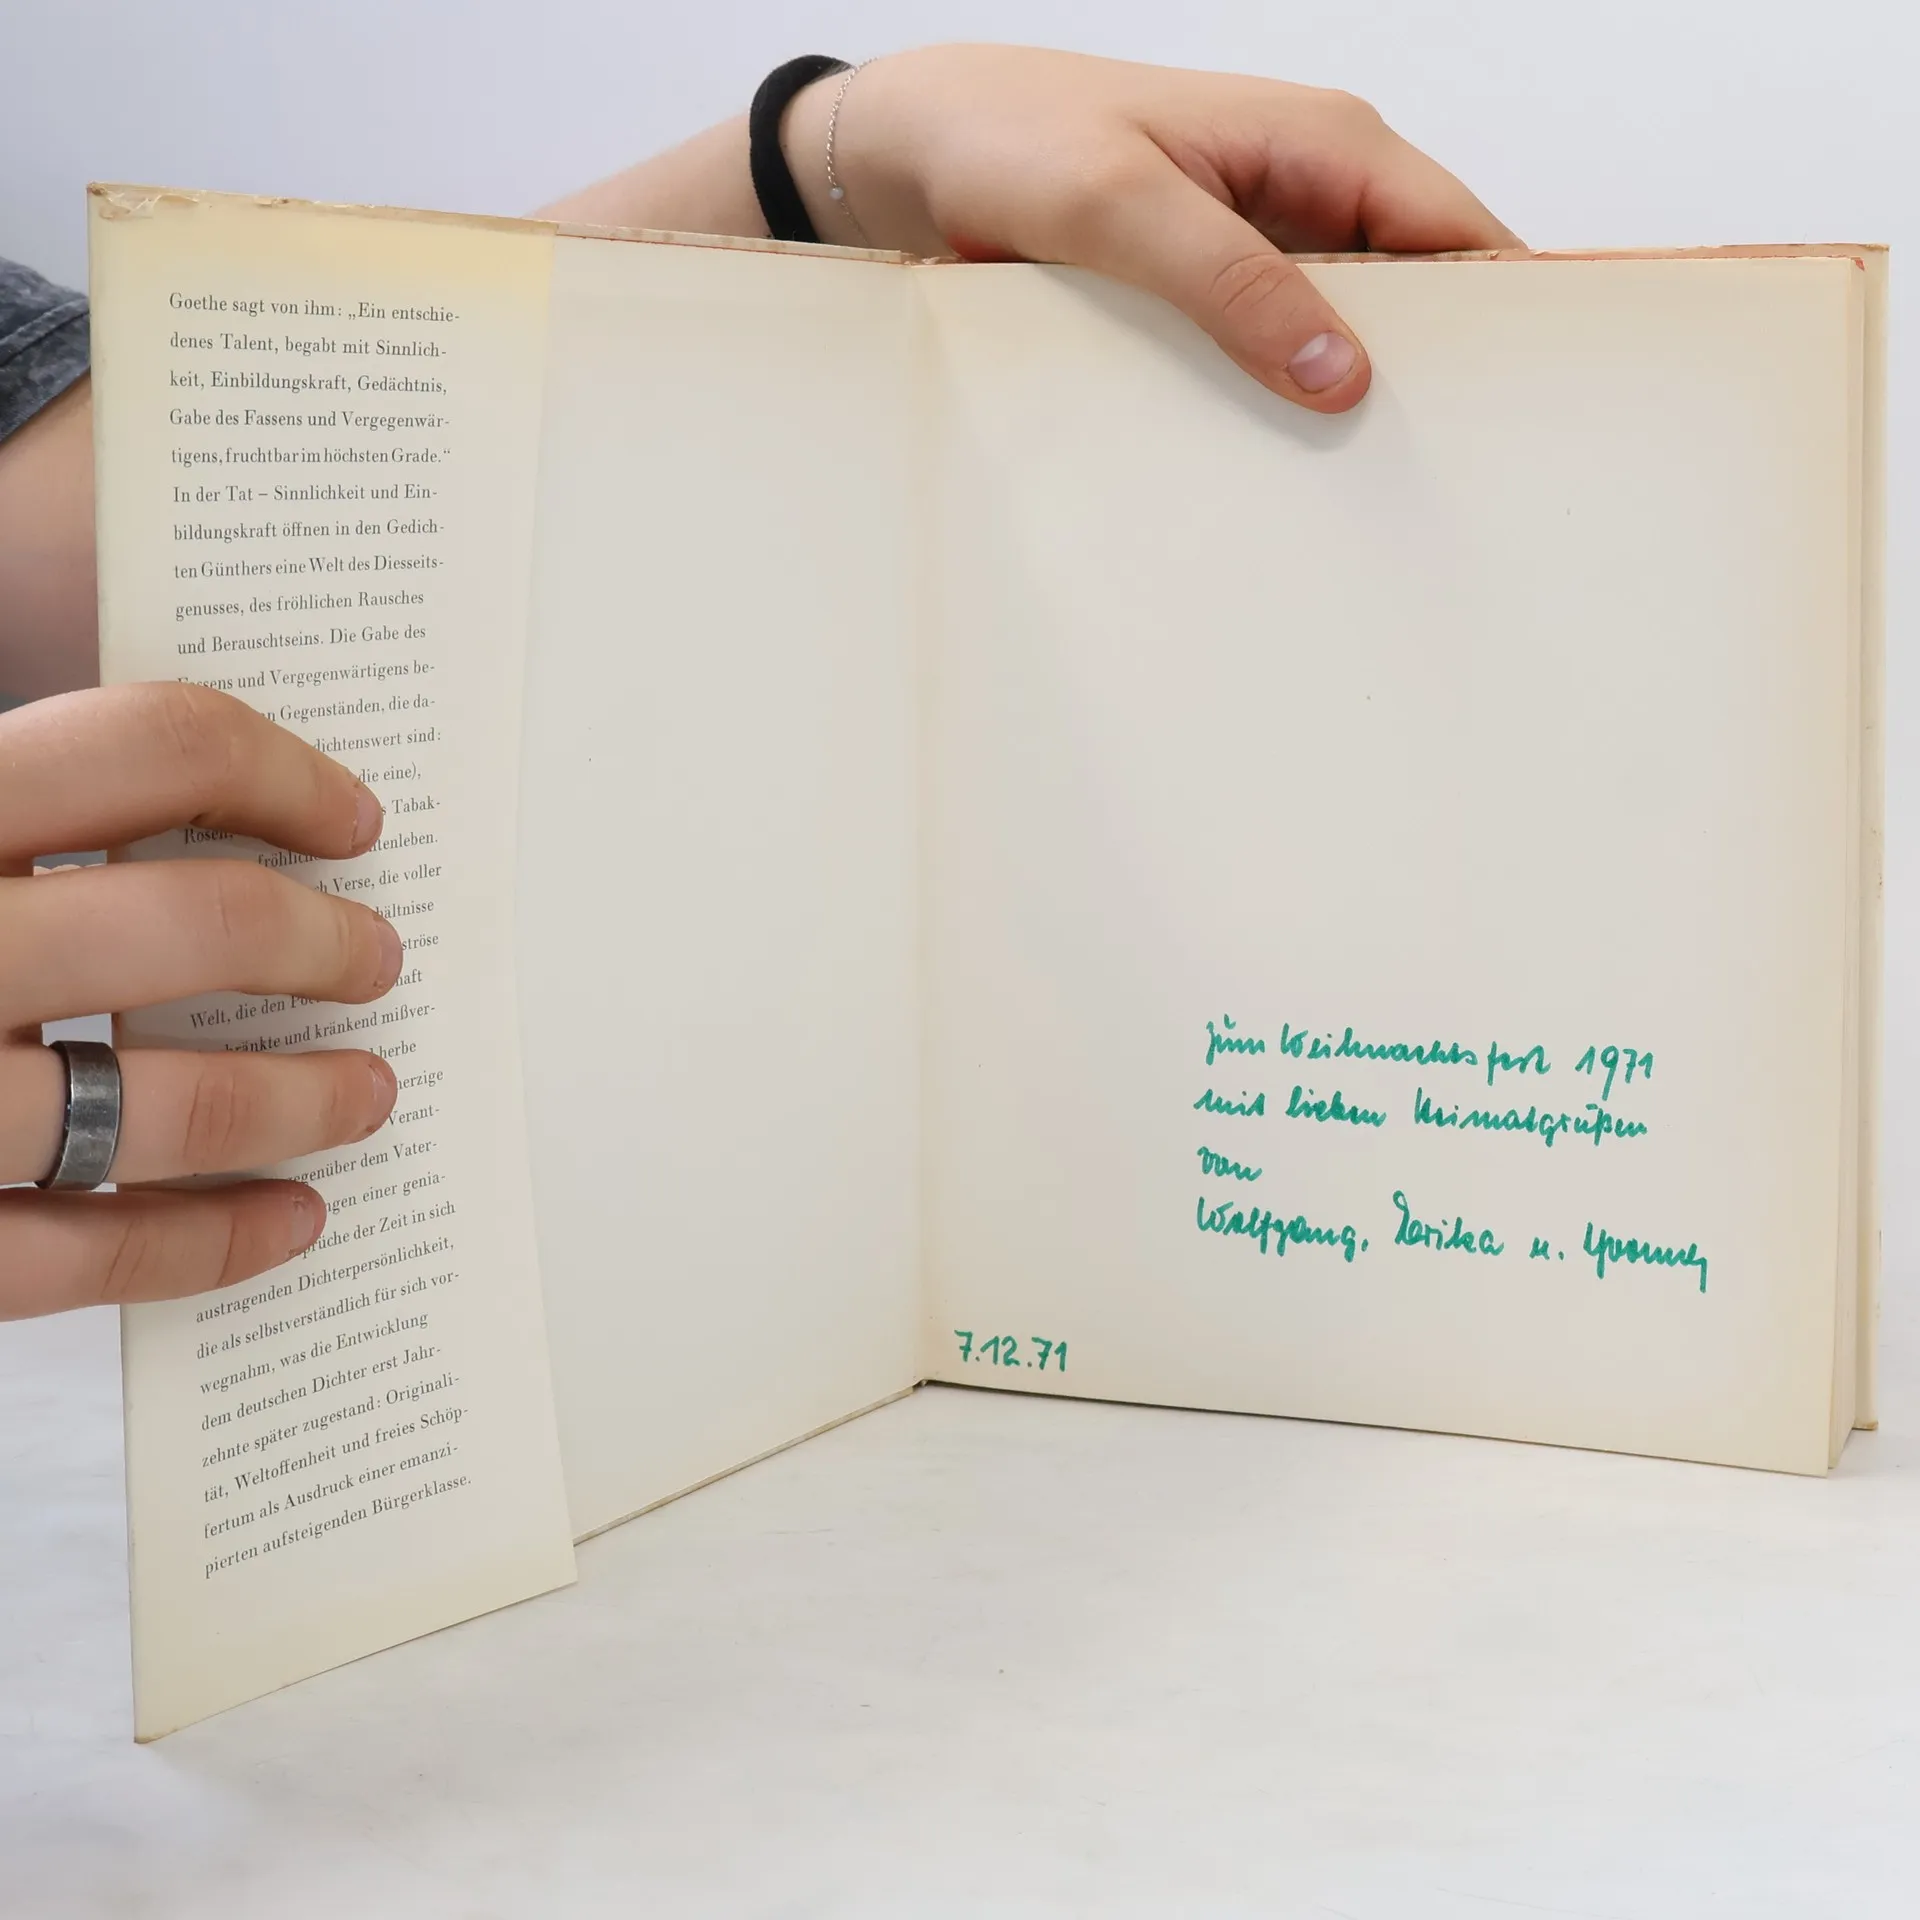 Goethe sagt von ihm: „Ein entschie-
denes Talent, begabt mit Sinnlich-
keit, Einbildungskraft, Gedächtnis,
Gabe des Fassens und Vergegenwär-
tigens, fruchtbar im höchsten Grade.“
In der Tat – Sinnlichkeit und Ein-
bildungskraft öffnen in den Gedich-
ten Günthers eine Welt des Diesseits-
genusses, des fröhlichen Rausches
und Berauschtseins. Die Gabe des
Fassens und Vergegenwärtigens be-
Gegenständen, die da-
dichtenswert sind:
die eine),
Tabak-
Rosen,
tenleben.
Verse, die voller
Welt, die den
und kränkend mißver-
herbe
Verant-
dem Vater-
einer genia-
der Zeit in sich
austragenden Dichterpersönlichkeit,
die als selbstverständlich für sich vor-
wegnahm, was die Entwicklung
dem deutschen Dichter erst Jahr-
zehnte später zugestand: Originali-
tät, Weltoffenheit und freies Schöp-
fertum als Ausdruck einer emanzi-
pierten aufsteigenden Bürgerklasse.
Zum Weihnachtsfest 1971
mit lieben Heimatgrüßen
von
Wolfgang, Erika u. Yvonne
7.12.71